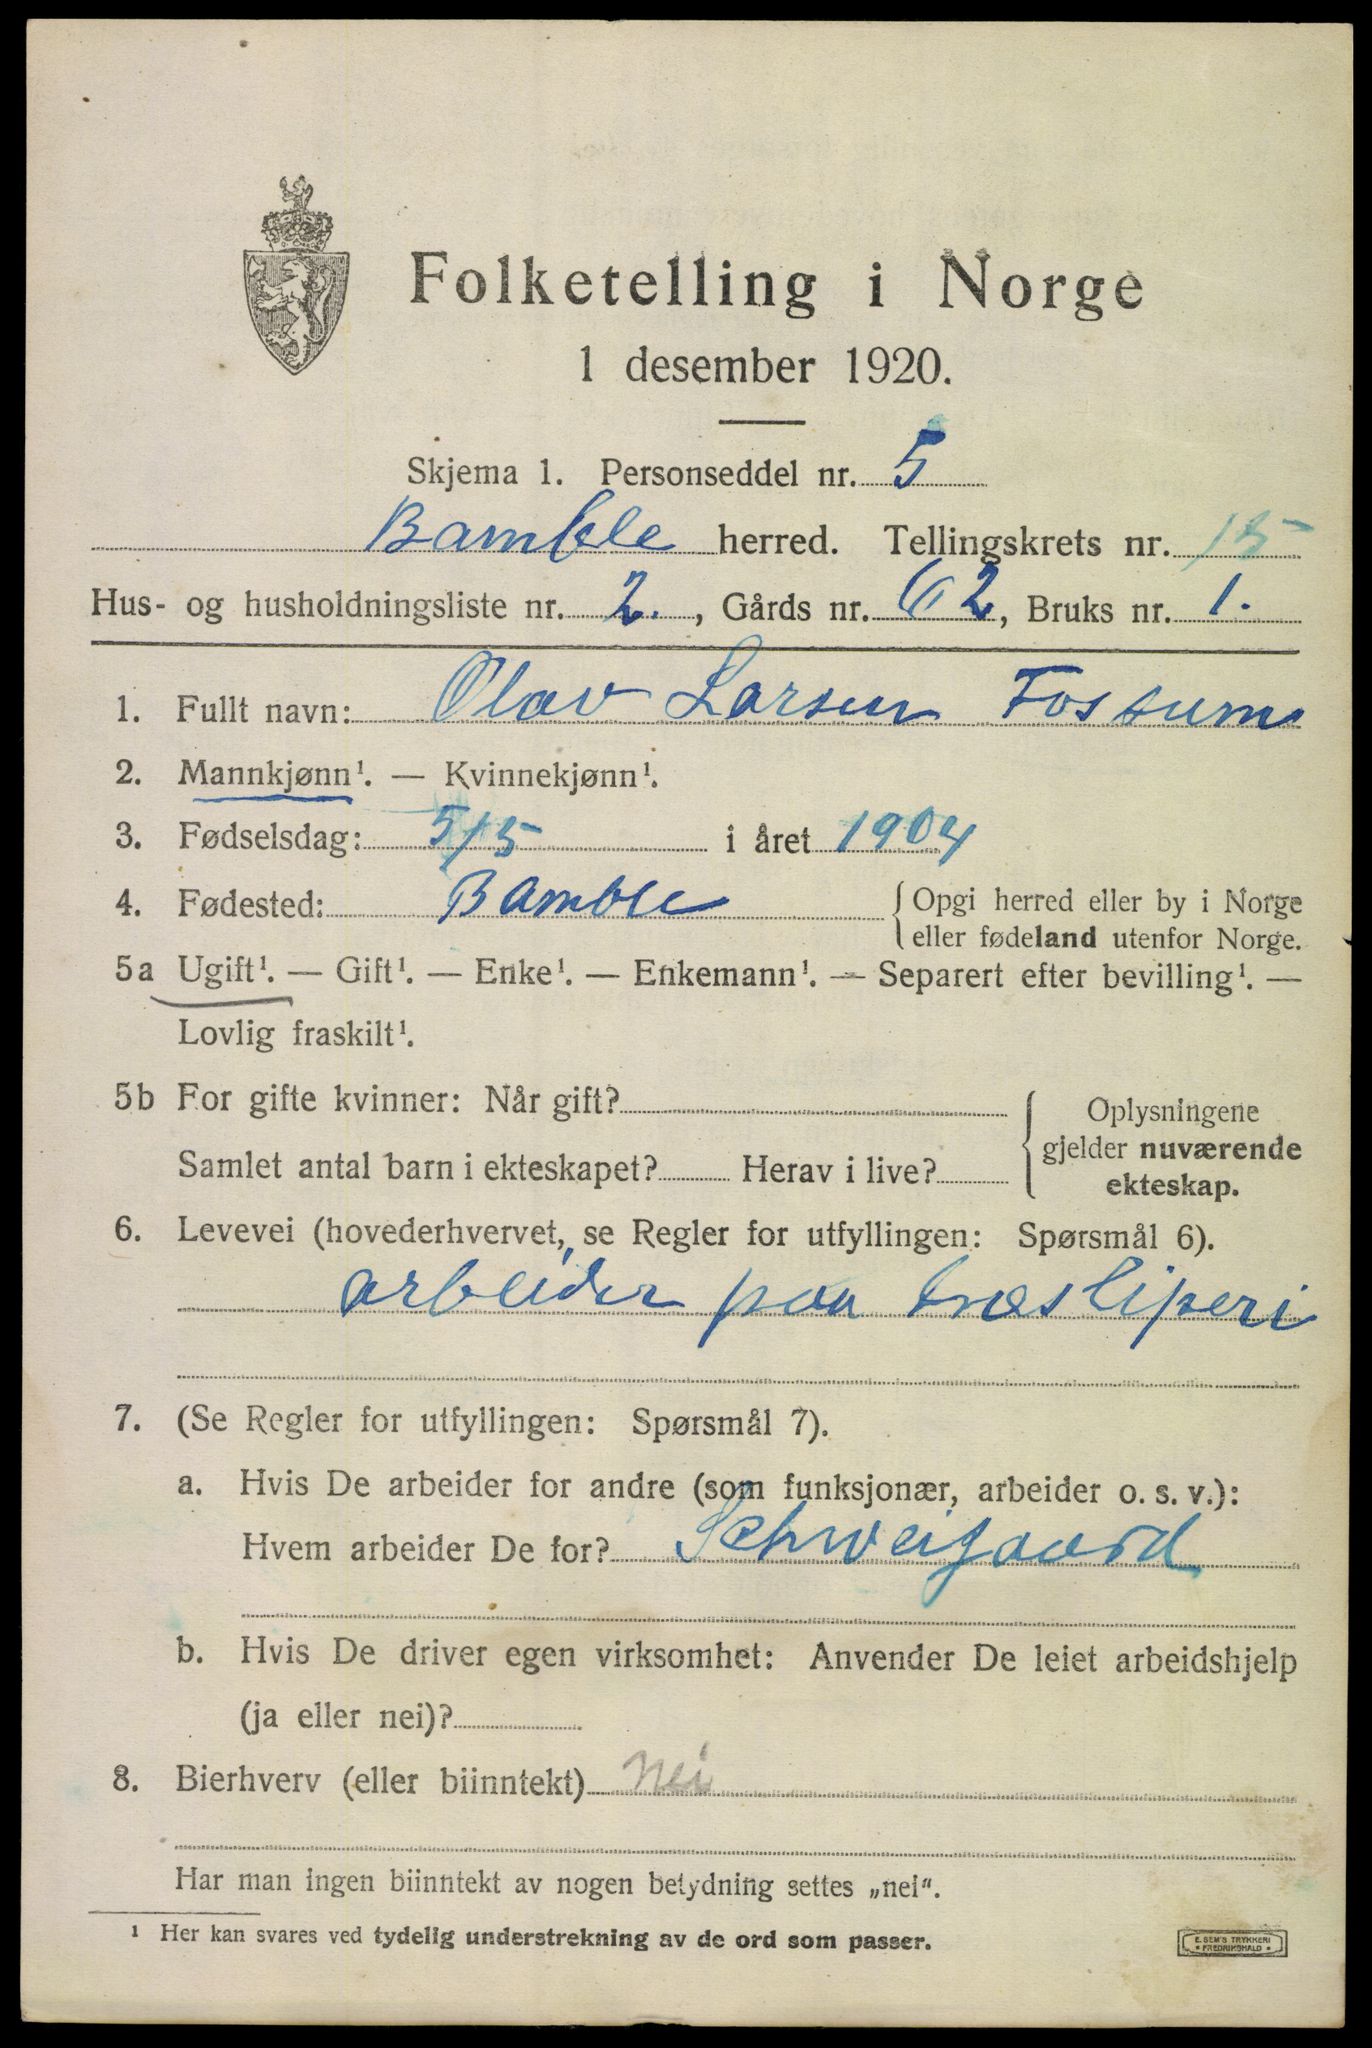 Folketelling i Norge
1 desember 1920.
Skjema 1. Personseddel nr. 5
Bamble herred. Tellingskrets nr. 15
Hus- og husholdningsliste nr. 2. , Gårds nr. 62, Bruks nr. 1.
1. Fullt navn: Olav Larsen Fossum
2. Mannkjønn¹. — Kvinnekjønn¹.
3. Fødselsdag: 5/5 i året 1904
4. Fødested: Bamble { Opgi herred eller by i Norge
eller fødeland utenfor Norge.
5a Ugift¹. — Gift¹. — Enke¹. — Enkemann¹. — Separert efter bevilling¹. —
Lovlig fraskilt¹.
5b For gifte kvinner: Når gift? { Oplysningene
gjelder nuværende
Samlet antal barn i ekteskapet? Herav i live? ekteskap.
6. Levevei (hovederhvervet, se Regler for utfyllingen: Spørsmål 6).
arbeider paa træsliperi
7. (Se Regler for utfyllingen: Spørsmål 7).
a. Hvis De arbeider for andre (som funksjonær, arbeider o. s. v.):
Hvem arbeider De for? Schweigaard
b. Hvis De driver egen virksomhet: Anvender De leiet arbeidshjelp
(ja eller nei)?
8. Bierhverv (eller biinntekt) Nei
Har man ingen biinntekt av nogen betydning settes „nei“.
¹ Her kan svares ved tydelig understrekning av de ord som passer.
E. SEM'S TRYKKERI
• FREDRIKSHALD •